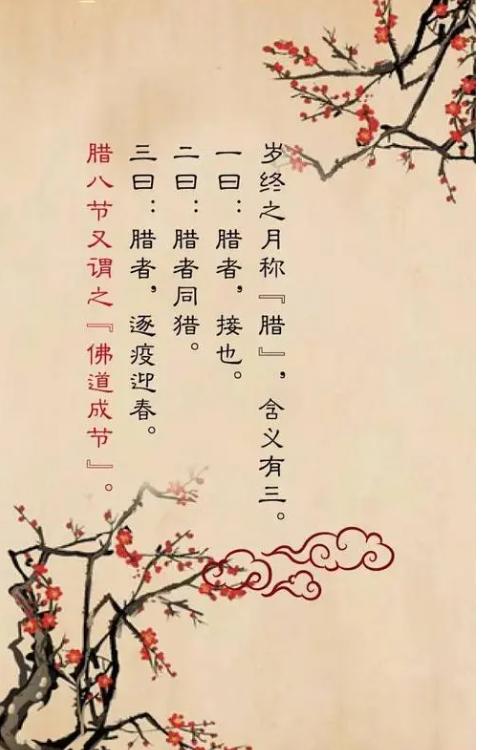 岁终之月称『腊』，含义有三。
一曰：腊者，接也。
二曰：腊者同猎。
三曰：腊者，逐疫迎春。
腊八节又谓之『佛道成节』。